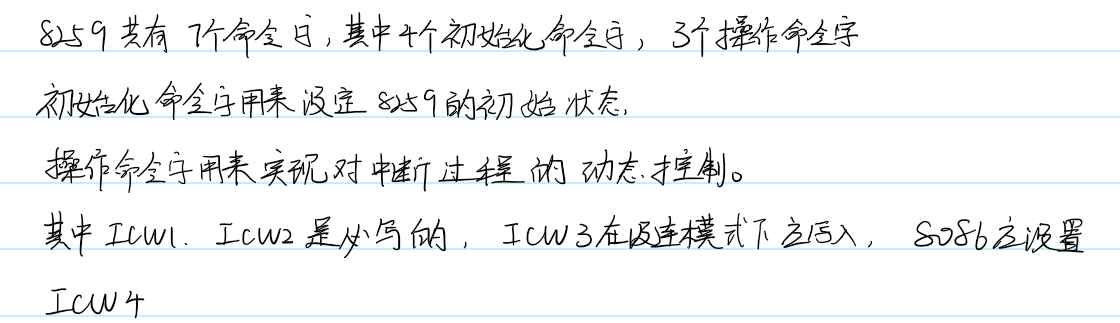 8259共有7个命令字,其中4个初始化命令字,3个操作命令字
初始化命令字用来设定8259的初始状态,
操作命令字用来实现对中断过程的动态控制。
其中ICW1.ICW2是必写的,ICW3在级连模式下应写入,8086应设置
ICW4